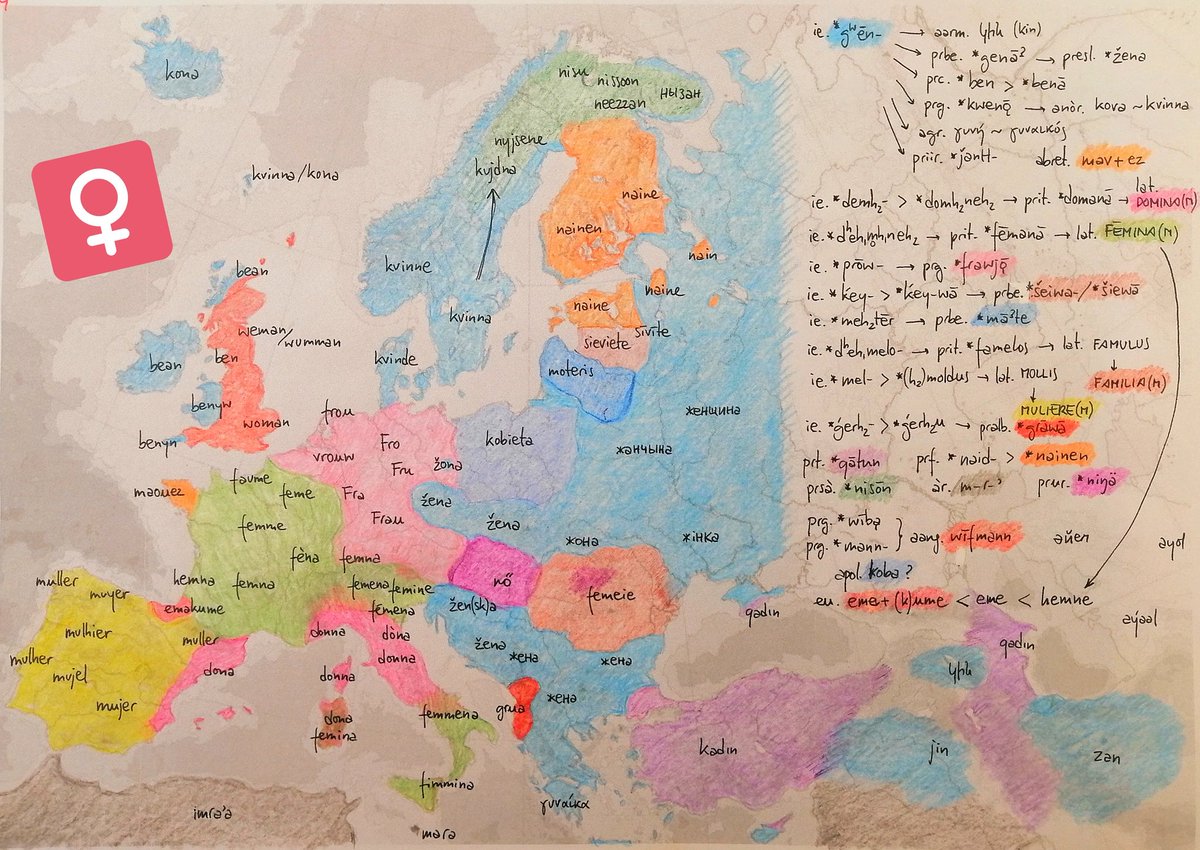 kona
kvinna/kona
nisu
nissoon
neezzan
нызан
nyjsene
kvjdna
naine
nainen
nain
kvinne
kvinna
naine
naine
sieviete
sivīte
moteris
kvinde
bean
weman/
wumman
ben
bean
benyw
woman
benyn
frou
vrouw
Fro
Fru
žona
Fra
Frau
kobieta
женщина
жанчына
жінка
žena
žena
жона
faume
feme
maouez
femme
fèna
femna
femna
hemna
emakume
femena
femine
fémena
nő
femeie
žen(sk)a
žena
жена
жена
жена
muller
muyer
mulhier
mulher
mujel
mujer
muller
dona
donna
dòna
donna
donna
dona
femina
femmena
fimmina
grua
γυναίκα
imra'a
mara
kadın
qadın
qadın
կին
jin
zan
ayol
aýal
әйел
ie. *gʷēn- → aarm. կին (kin)
prbe. *genāˀ → presl. *žena
prc. *ben > *benā
prg. *kwenǭ → anòr. kova ~ kvinna
agr. γυνή ~ γυναικός
priir. *ǰantI-
abret. mav + ez
ie. *demh₂- > *domh₂neh₂ → prit. *domanā → lat. DOMINA(M)
ie. *dʰeh₁m̥h₁neh₂ → prit. *fēmanā → lat. FĒMINA(M)
ie. *prōw- → prg. *frawjǭ
ie. *ḱey- > *ḱey-wā → prbe. *šeiwa-/*šiewā
ie. *meh₂tēr → prbe. *māˀte
ie. *dʰeh₁melo- → prit. *famelos → lat. FAMULUS
FAMILIA(M)
ie. *mel- > *(h₂)moldus → lat. MOLLIS
MULIERE(M)
ie. *ǵerh₂- > *ǵerh₂u → pralb. *grāwā
prt. *qātun
prf. *naid- > *nainen
prsà. *nisōn
àr. m-r-ˀ
prur. *ninä
prg. *wībą
prg. *mann-
} aang. wīfmann
apol. koba?
eu. eme + (k)ume < eme < hemne